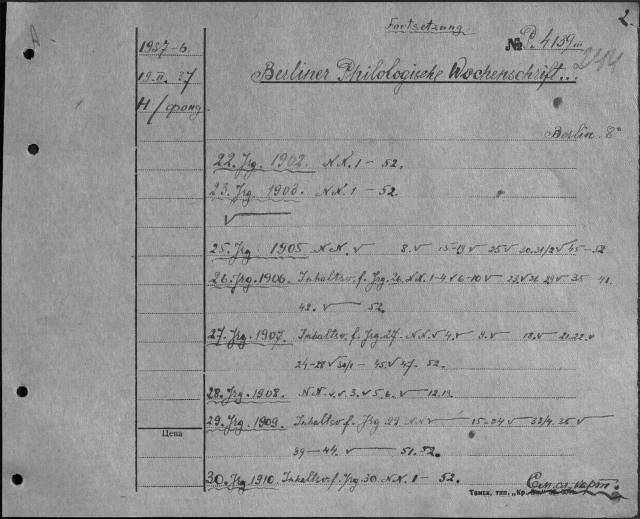 2.
Fortsetzung
№ P. 4139 III
244
1937-6
19.II.37
Н/фонд
Berliner Philologische Wochenschrift..
Berlin. 8°
22. Jrg. 1902. N.N. 1 - 52.
23. Jrg. 1903. N.N. 1 - 52
25. Jrg. 1905 N.N. v 8. v 15-19 v 25 v 30. 31/2 v 45 - 52
26. Jrg. 1906. Inhaltsv. f. Jrg. 26. N.N. 1-4 v 6-10 v 29 v 35 41.
42. v 52.
27. Jrg. 1907. Inhaltsv. f. Jrg. 27. N.N. v 4. v 9. v 18. v 21.22. v
24-28 v 30/1 - 45 v 47 - 52.
28. Jrg. 1908. N.N. v. v. 3. v 5. 6. v 12.13.
29. Jrg. 1909. Inhaltsv. f. Jrg 29. N.N. v 15-24 v 33/4. 35 v
39 - 44. v 51. 52.
30. Jrg. 1910. Inhaltsv. f. Jrg. 30. N.N. 1 - 52.
Цена
См. сл. карт.
Томск, тип. „Кр.